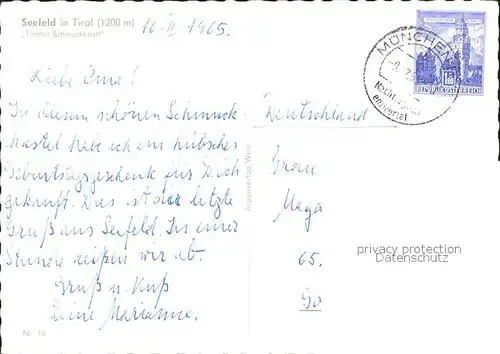 Seefeld in Tirol (1200 m)
"Tiroler Schmuckkastl"
16. II. 1965.
Liebe Oma!
In diesem schönen Schmuck-
kastel habe ich ein hübsches
Geburtstagsgeschenk für Dich
gekauft. Das ist der letzte
Gruß aus Seefeld. In einer
Stunde reisen wir ab.
Gruß u. Kuß
Deine Marianne.
Nr. 18
Alpenverlag Wer
MÜNCHEN
Nicht
entwertet
REPUBLIK ÖSTERREICH
Deutschland
Frau
Maga
65.
Go
privacy protection
Datenschutz